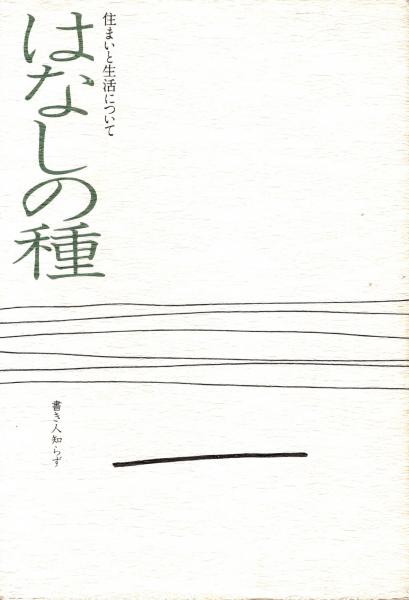 住まいと生活について
はなしの種
書き人知らず